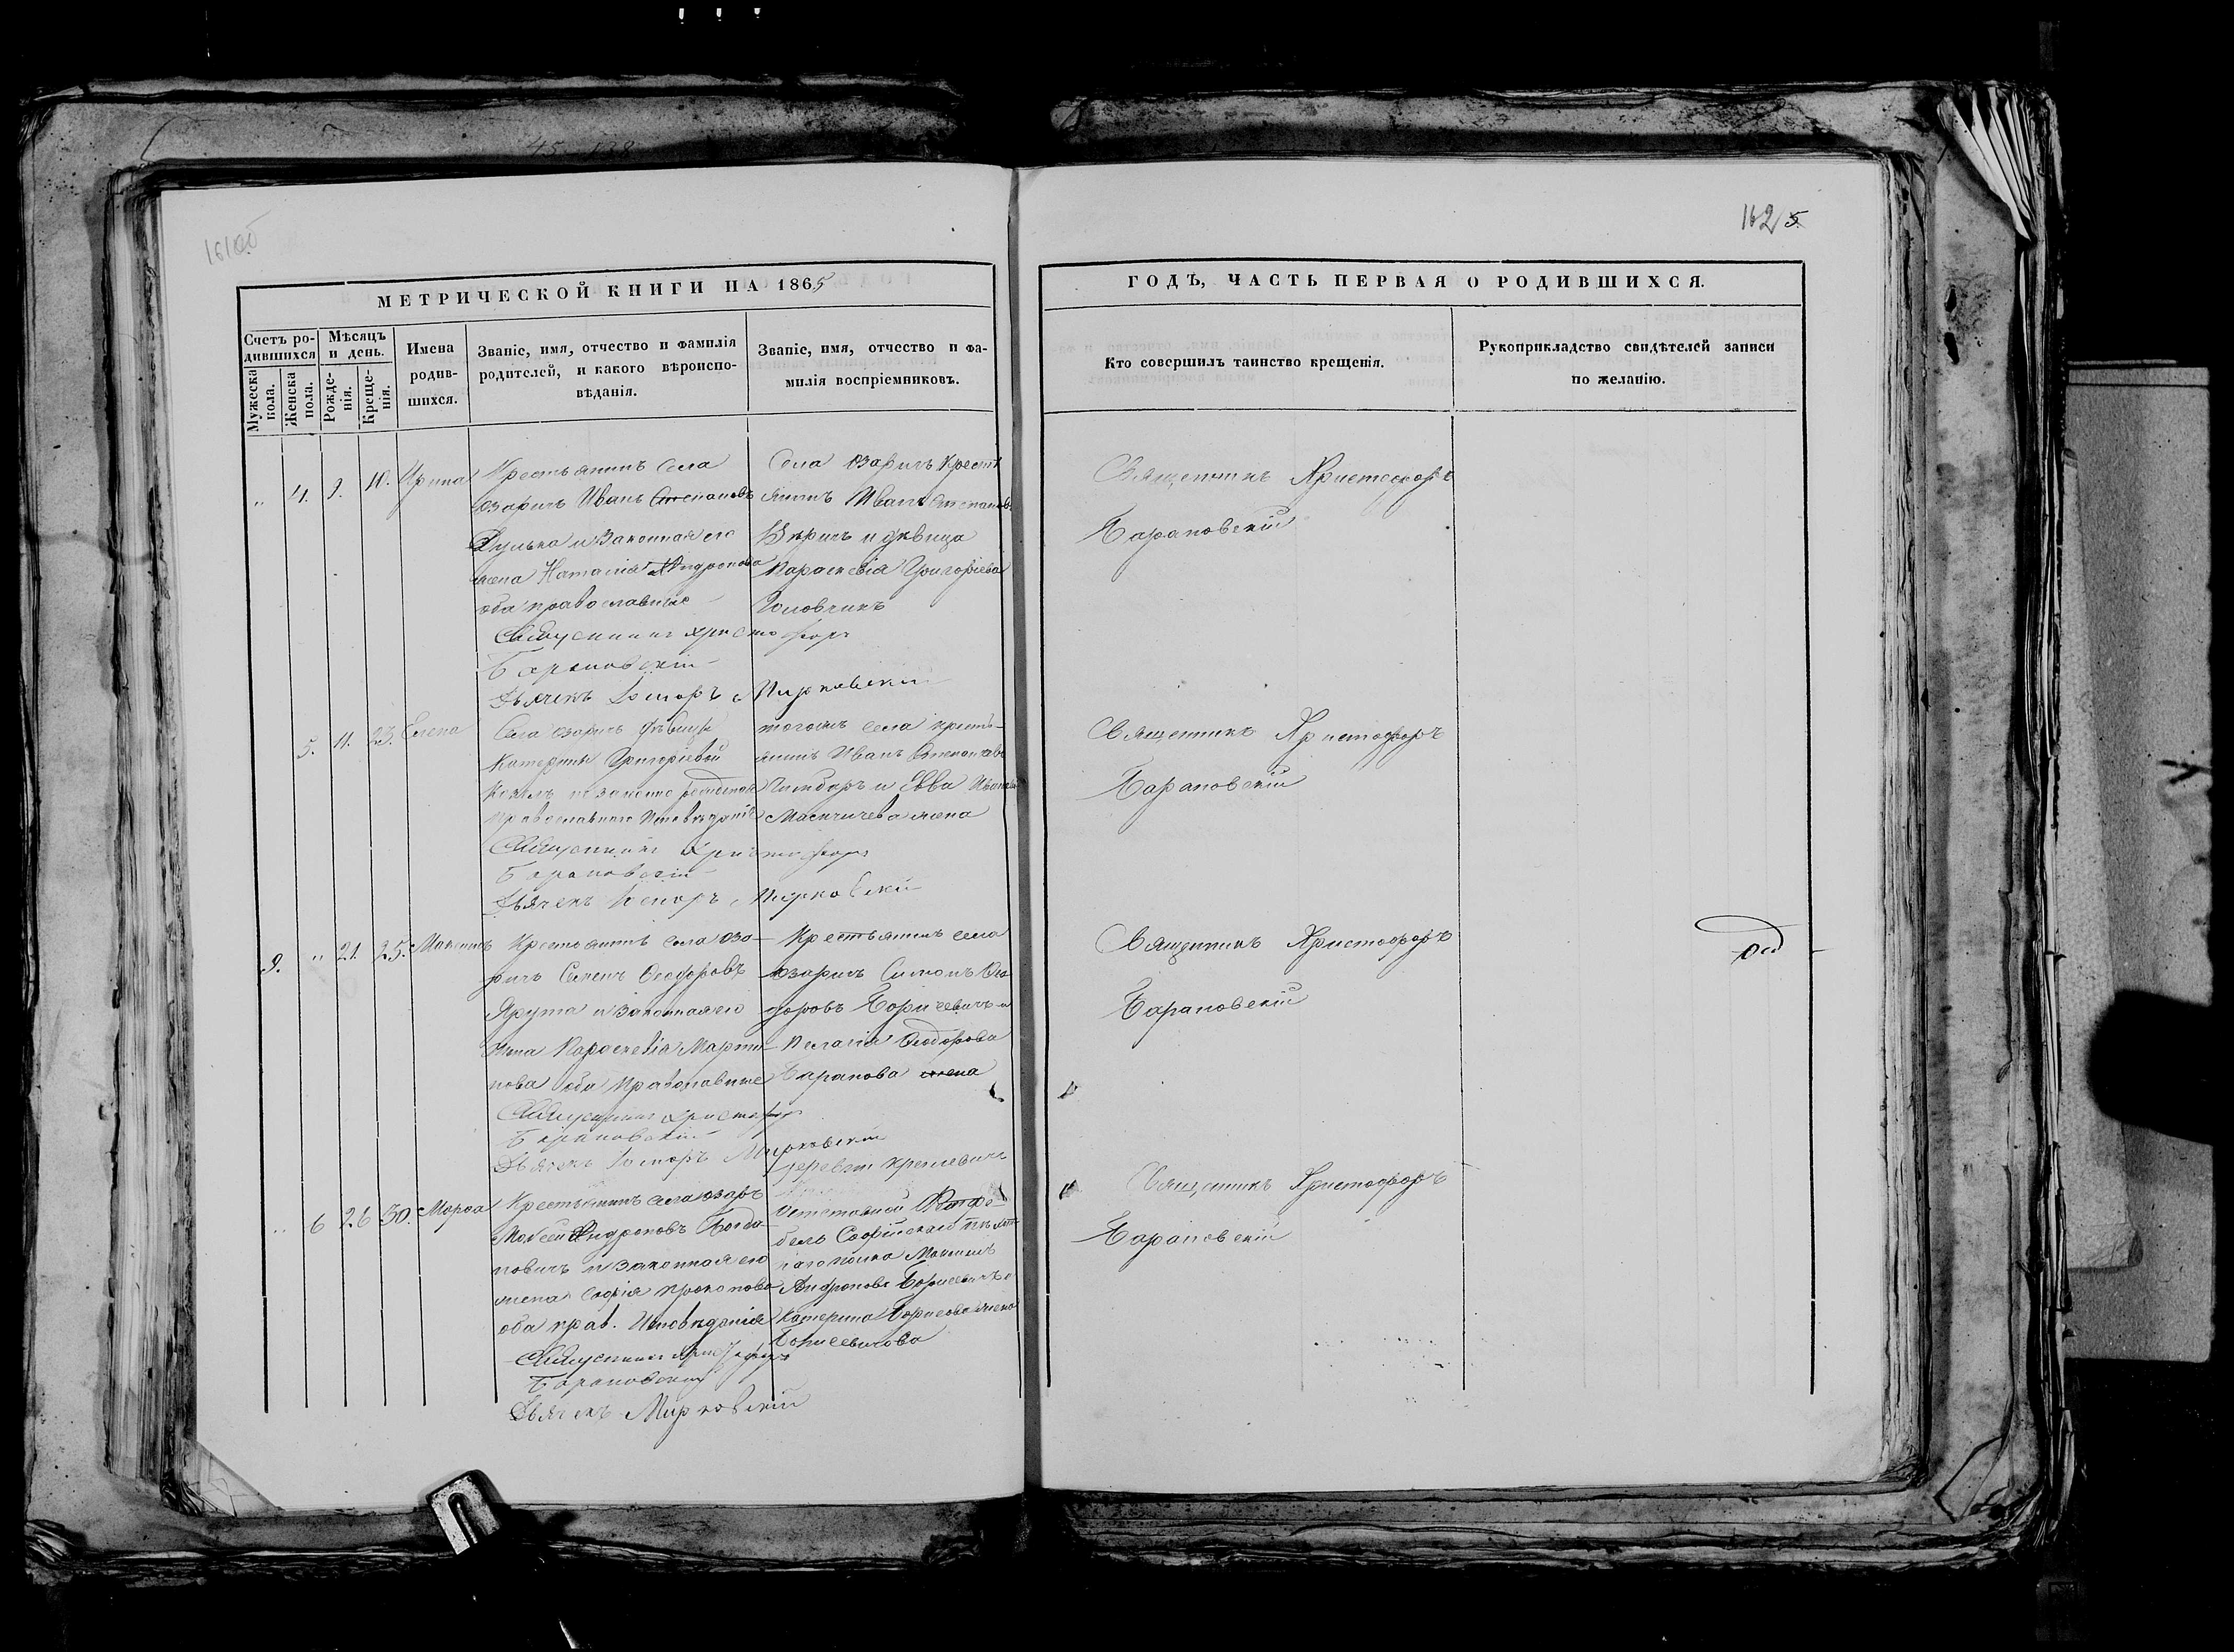 45 138
161об
162 5.
МЕТРИЧЕСКОЙ КНИГИ НА 1865
ГОДЪ, ЧАСТЬ ПЕРВАЯ О РОДИВШИХСЯ.
Счетъ родившихся
Мужеска пола.
Женска пола.
Мѣсяцъ и день.
Рожденія.
Крещенія.
Имена родившихся.
Званіе, имя, отчество и фамилія
родителей, и какого вѣроиспо-
вѣданія.
Званіе, имя, отчество и фа-
милія воспріемниковъ.
Кто совершилъ таинство крещенія.
Рукоприкладство свидѣтелей записи
по желанію.
" 4. 9. 10. Ирина
Крестьянинъ села
Озаричъ Иванъ Степановъ
Дулька и законная его
жена Наталія Андронова
оба православные
Села Озаричъ Кресть
янинъ Иванъ Степановъ
и дѣвица
Параскевія Григоріева
Головчикъ
Священникъ Христофоръ
Барановскій
Священникъ Христофоръ
Барановскій
Дьячекъ Мирковскій
5. 11. 23. Елена
Села Озаричъ дѣвицы
Катерины Григоріевой
незаконно рожденная
Православнаго Исповѣданія
тогожъ села кресть-
янинъ Иванъ Степановъ
и Евва
жена
Священникъ Христофоръ
Барановскій
Священникъ Христофоръ
Барановскій
Дьячекъ Мирковскій
9. " 21. 25. Максимъ
Крестьянинъ села Оза-
ричъ Семенъ Ѳеодоровъ
Ярута и законная его
жена Параскевія Марти-
нова оба Православные
Крестьянинъ села
Озаричъ Симонъ Ѳео
доровъ Борисевичъ и
Пелагія Ѳеодорова
Баранова жена
Священникъ Христофоръ
Барановскій
Священникъ Христофоръ
Барановскій
Дьячекъ Мирковскій
" 6 26 30. Марѳа
Крестьянинъ села Озаръ
Мовсей Андроновъ Богда-
новичъ и законная его
жена Софія Прокопова
оба прав. Исповѣданія
деревни
Отставной
Софійскаго пѣхот
наго полка Максимъ
Андроновъ Борисевичъ и
Катерина Борисова жена
Борисевичова
Священникъ Христофоръ
Барановскій
Священникъ Христофоръ
Барановскій
Дьячекъ Мирковскій